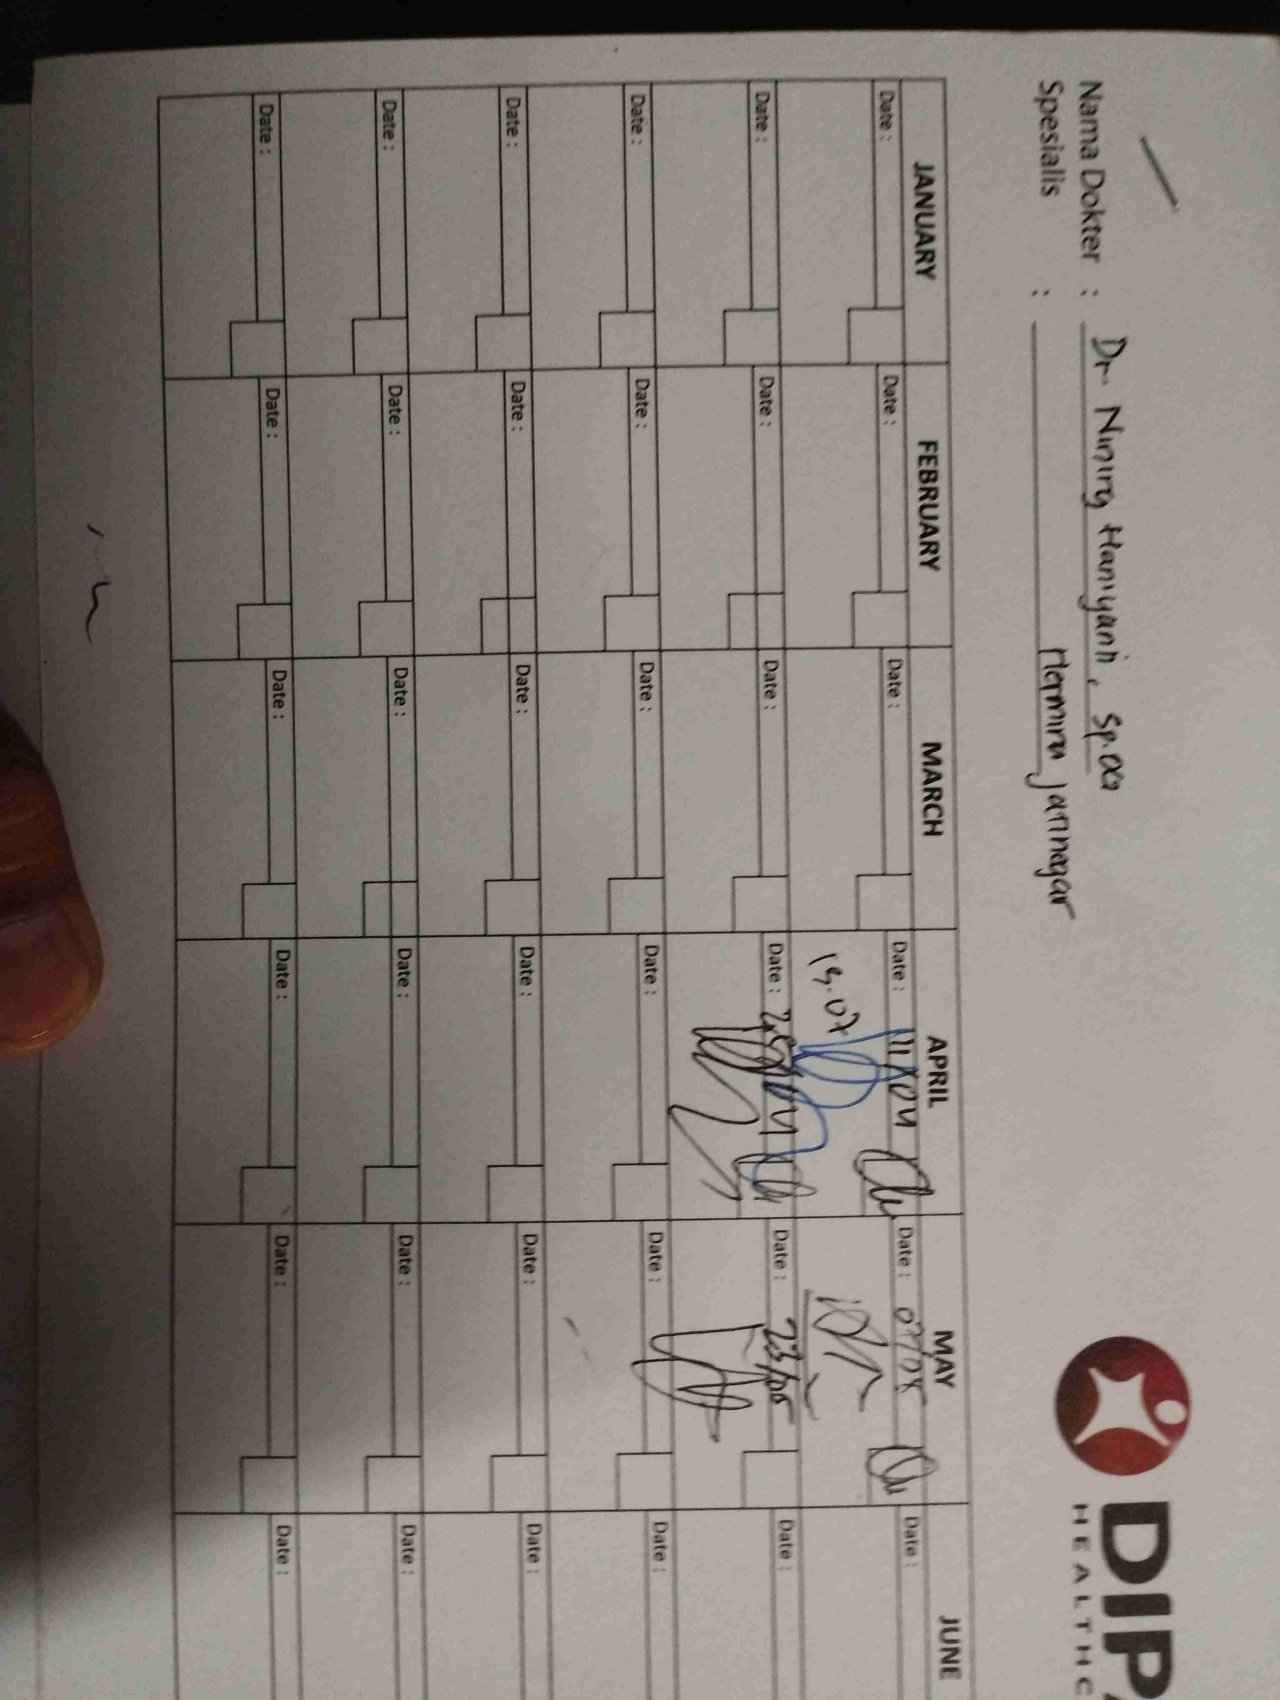 DIP
HEALTHC
Nama Dokter : Dr Nining Haniyanti, Sp.OG
Spesialis : Hermina Jatinegara
JANUARY FEBRUARY MARCH APRIL MAY JUNE
Date : Date : Date : Date : 11/04 Date : 07/05 Date :
19.07
Date : Date : Date : Date : 25/04 Date : 23/05 Date :
Date : Date : Date : Date : Date : Date :
Date : Date : Date : Date : Date : Date :
Date : Date : Date : Date : Date : Date :
Date : Date : Date : Date : Date : Date :